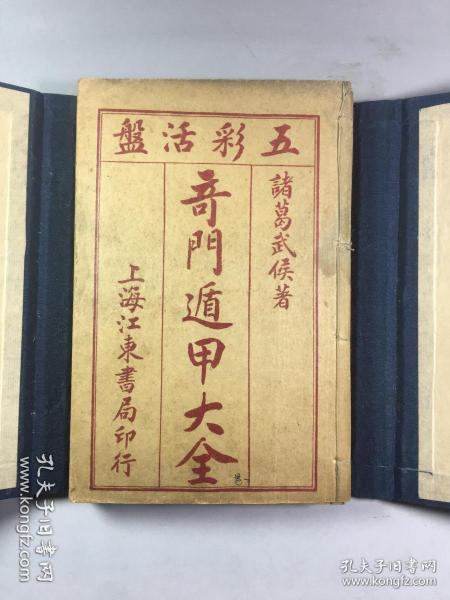 五彩活盤
諸葛武侯著
奇門遁甲大全
卷一
上海江東書局印行
孔夫子旧书网
孔夫子旧书网
www.kongfz.com